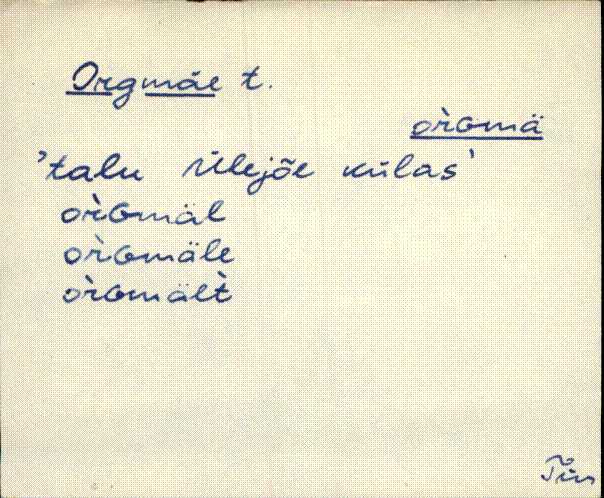 Orgmäe t.
or̀ɢmä
'talu Ülejõe külas'
or̀ɢmäl
or̀ɢmäle
or̀ɢmäl̀t